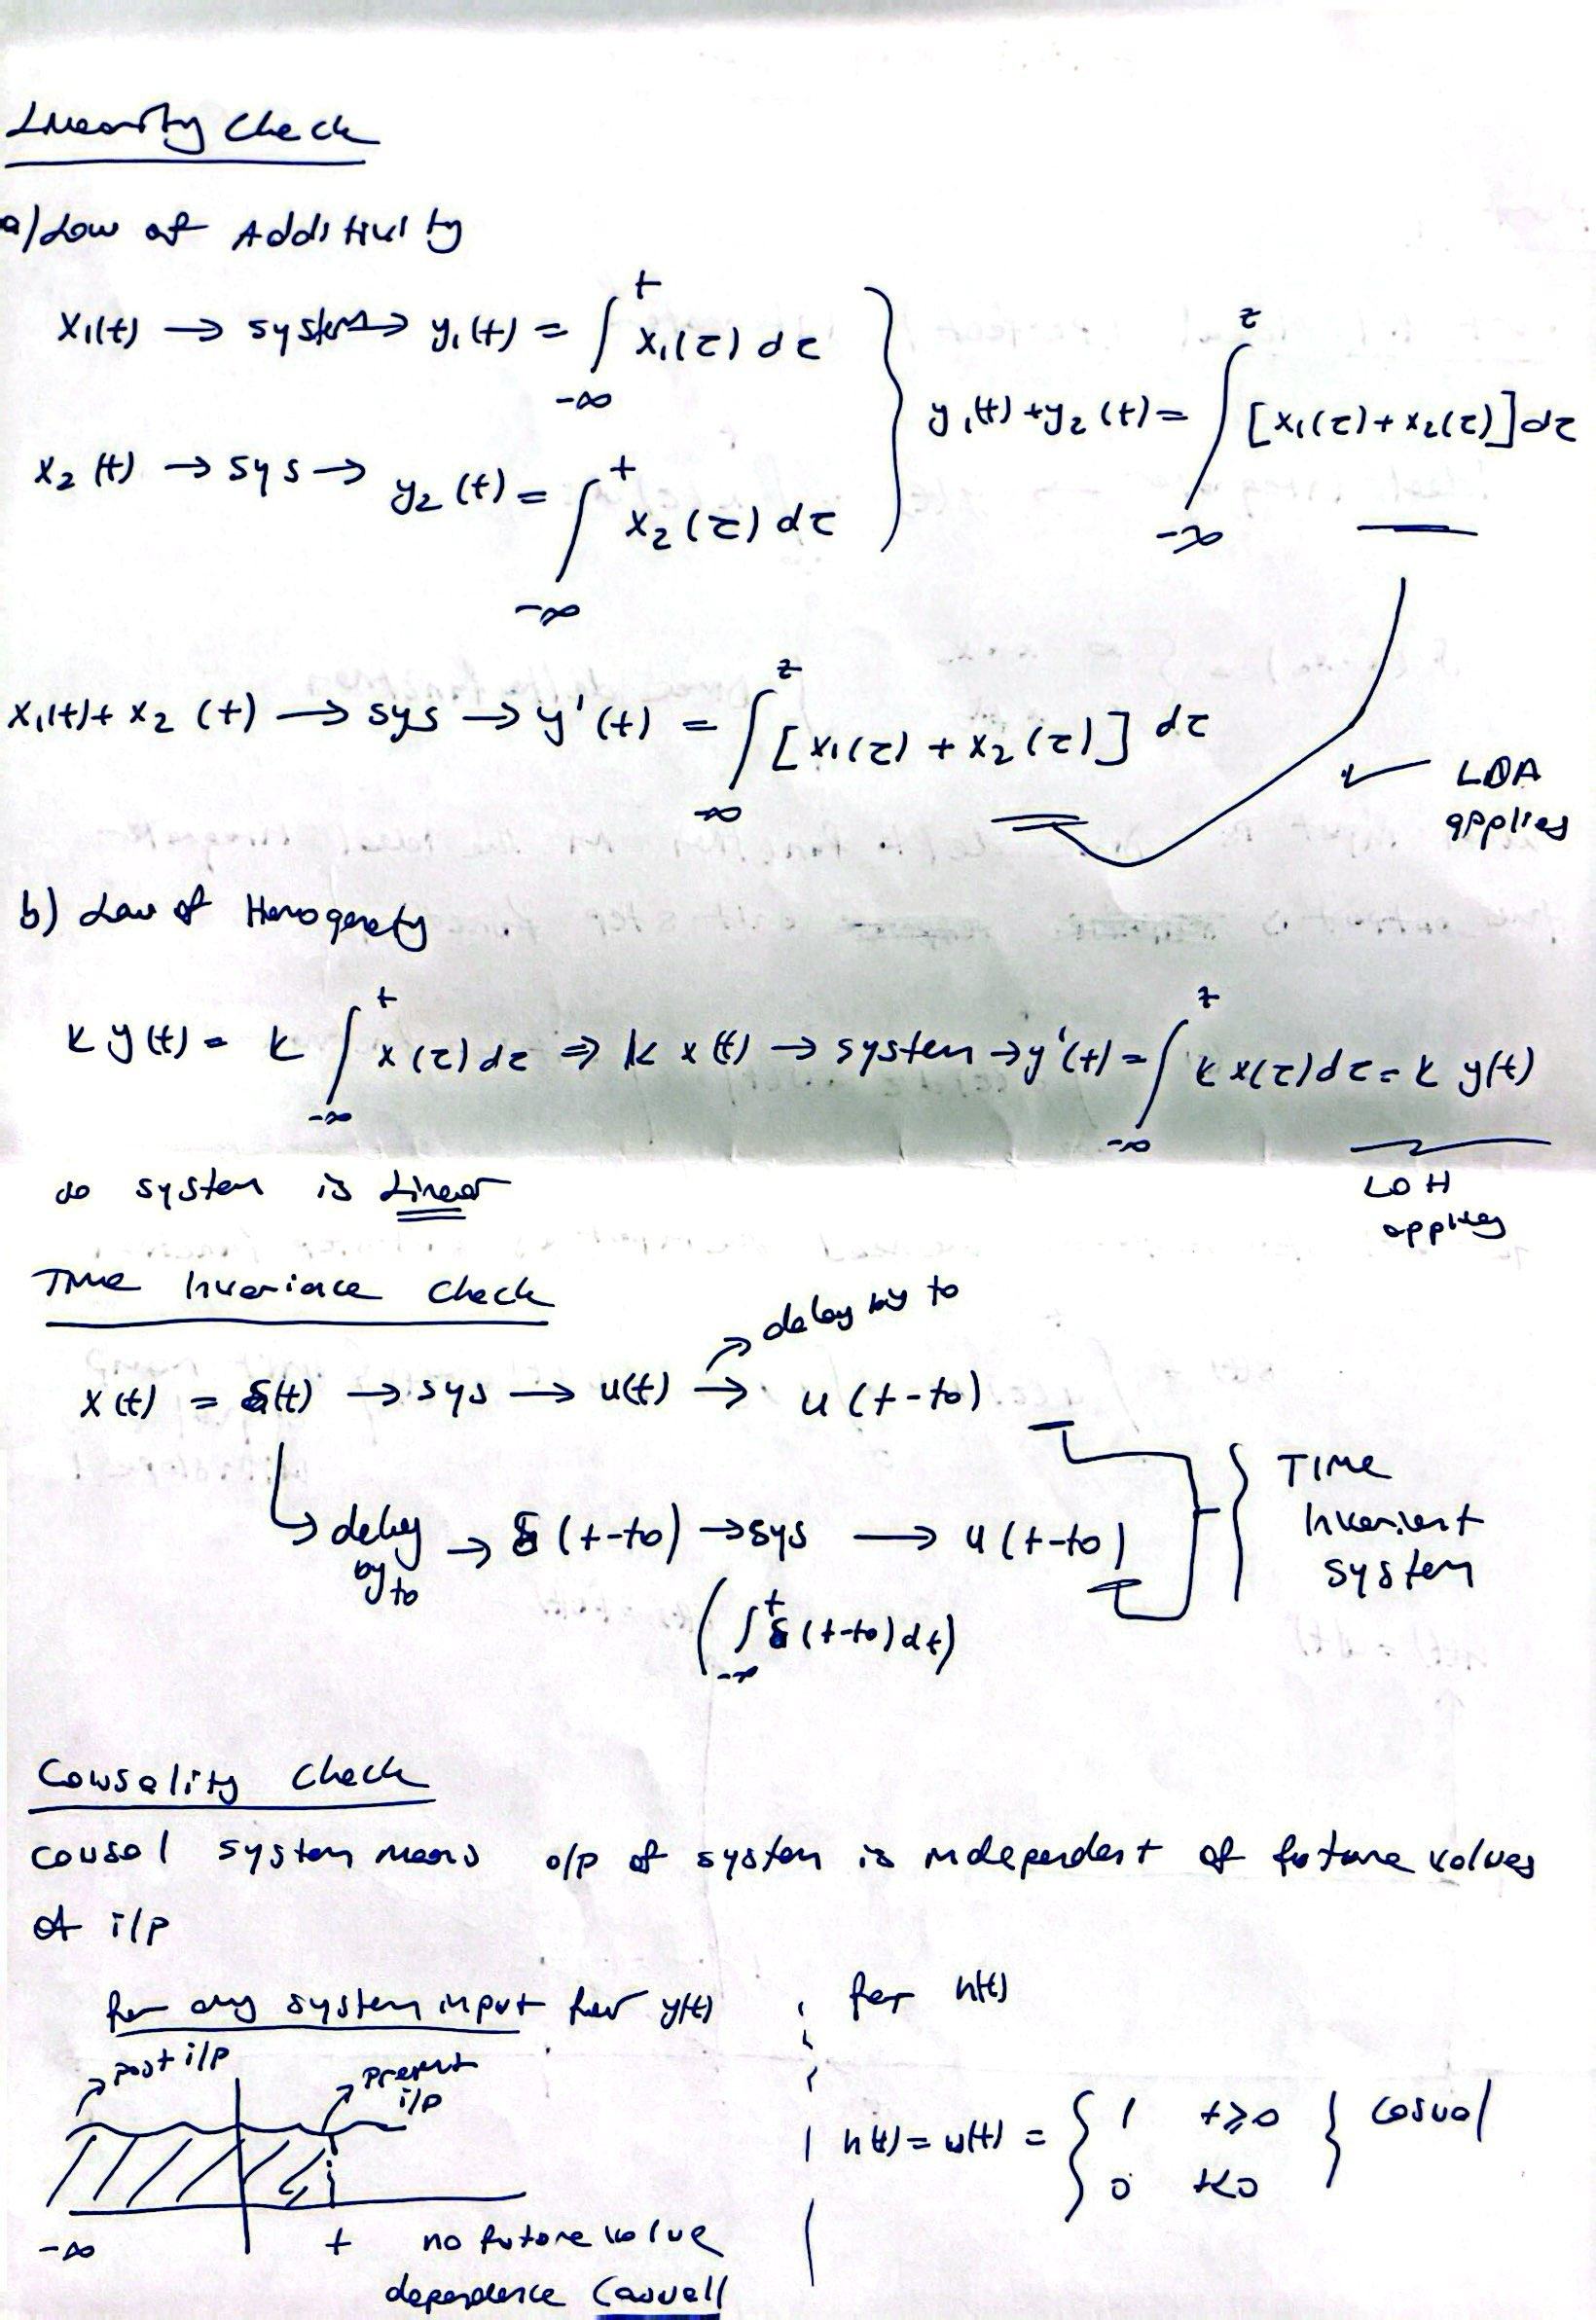 Linearity Check
a) Law of Additivity
x₁(t) → system → y₁(t) = ∫_{-∞}^{t} x₁(τ) dτ
x₂(t) → sys → y₂(t) = ∫_{-∞}^{t} x₂(τ) dτ
} y₁(t) + y₂(t) = ∫_{-∞}^{t} [x₁(τ) + x₂(τ)] dτ
x₁(t) + x₂(t) → sys → y'(t) = ∫_{-∞}^{t} [x₁(τ) + x₂(τ)] dτ
✓ LOA
applies
b) Law of Homogenety
k y(t) = k ∫_{-∞}^{t} x(τ) dτ ⇒ k x(t) → system → y'(t) = ∫_{-∞}^{t} k x(τ) dτ = k y(t)
LOH
applies
so system is Linear
Time Invariance Check
delay by to
x(t) = δ(t) → sys → u(t) → u(t-to)
delay by to → δ(t-to) → sys → u(t-to)
(∫_{-∞}^{t} δ(t-to) dt)
} Time
Invarient
system
Causality Check
causal system means o/p of system is independent of future values
of i/p
for any system input for y(t)
past i/p
present
i/p
-∞ t
no future value
dependence Casuall
for h(t)
h(t) = u(t) = { 1 t≥0
0 t<0 } Casual